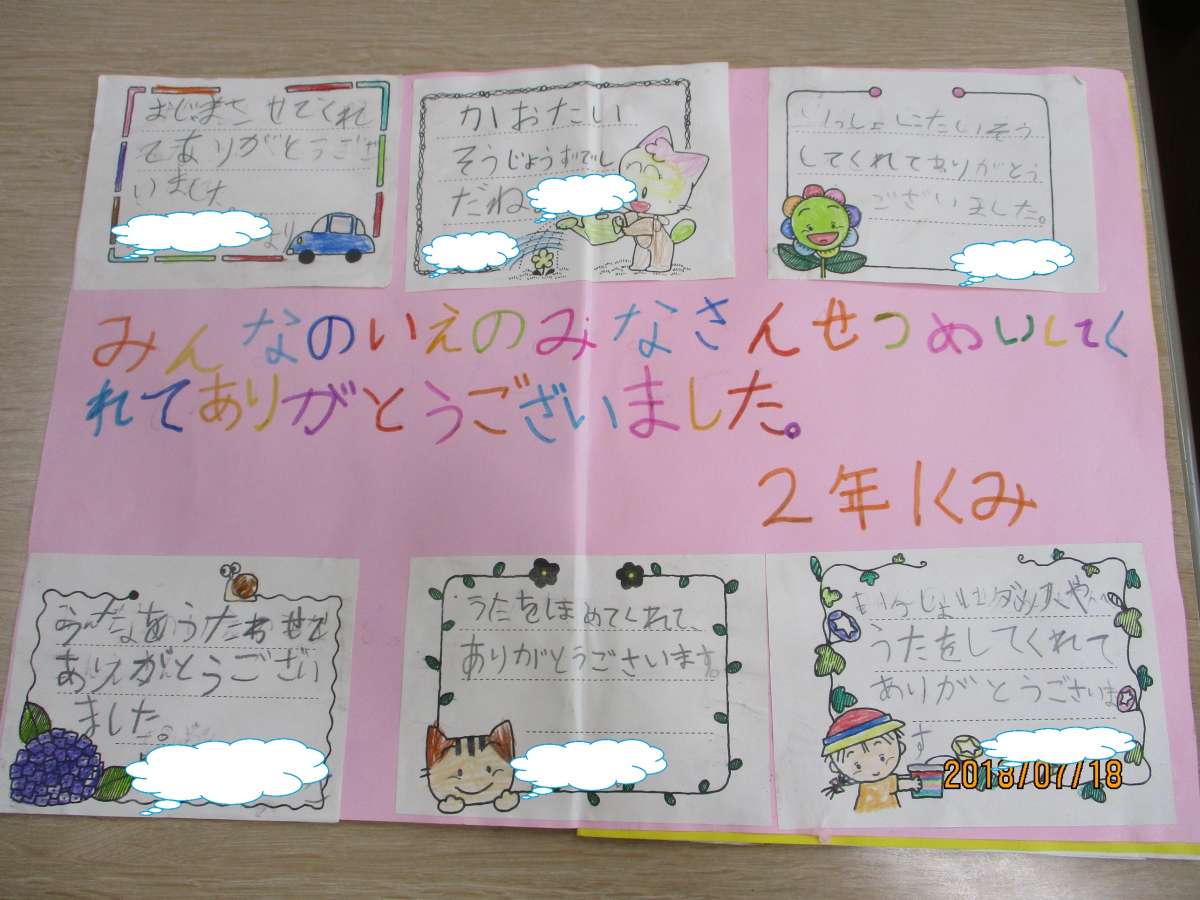 おじまさせてくれ
てありがとうござ
いました。
より
かおたい
そうじょうずでし
だね
いっしょにたいそう
してくれてありがとう
ございました。
みんなのいえのみなさんせつめいしてく
れてありがとうございました。
2年1くみ
うたをうたわせて
ありがとうござい
ました。
うたをほめてくれて、
ありがとうございます。
うたをしてくれて
ありがとうございま
す
2018/07/18